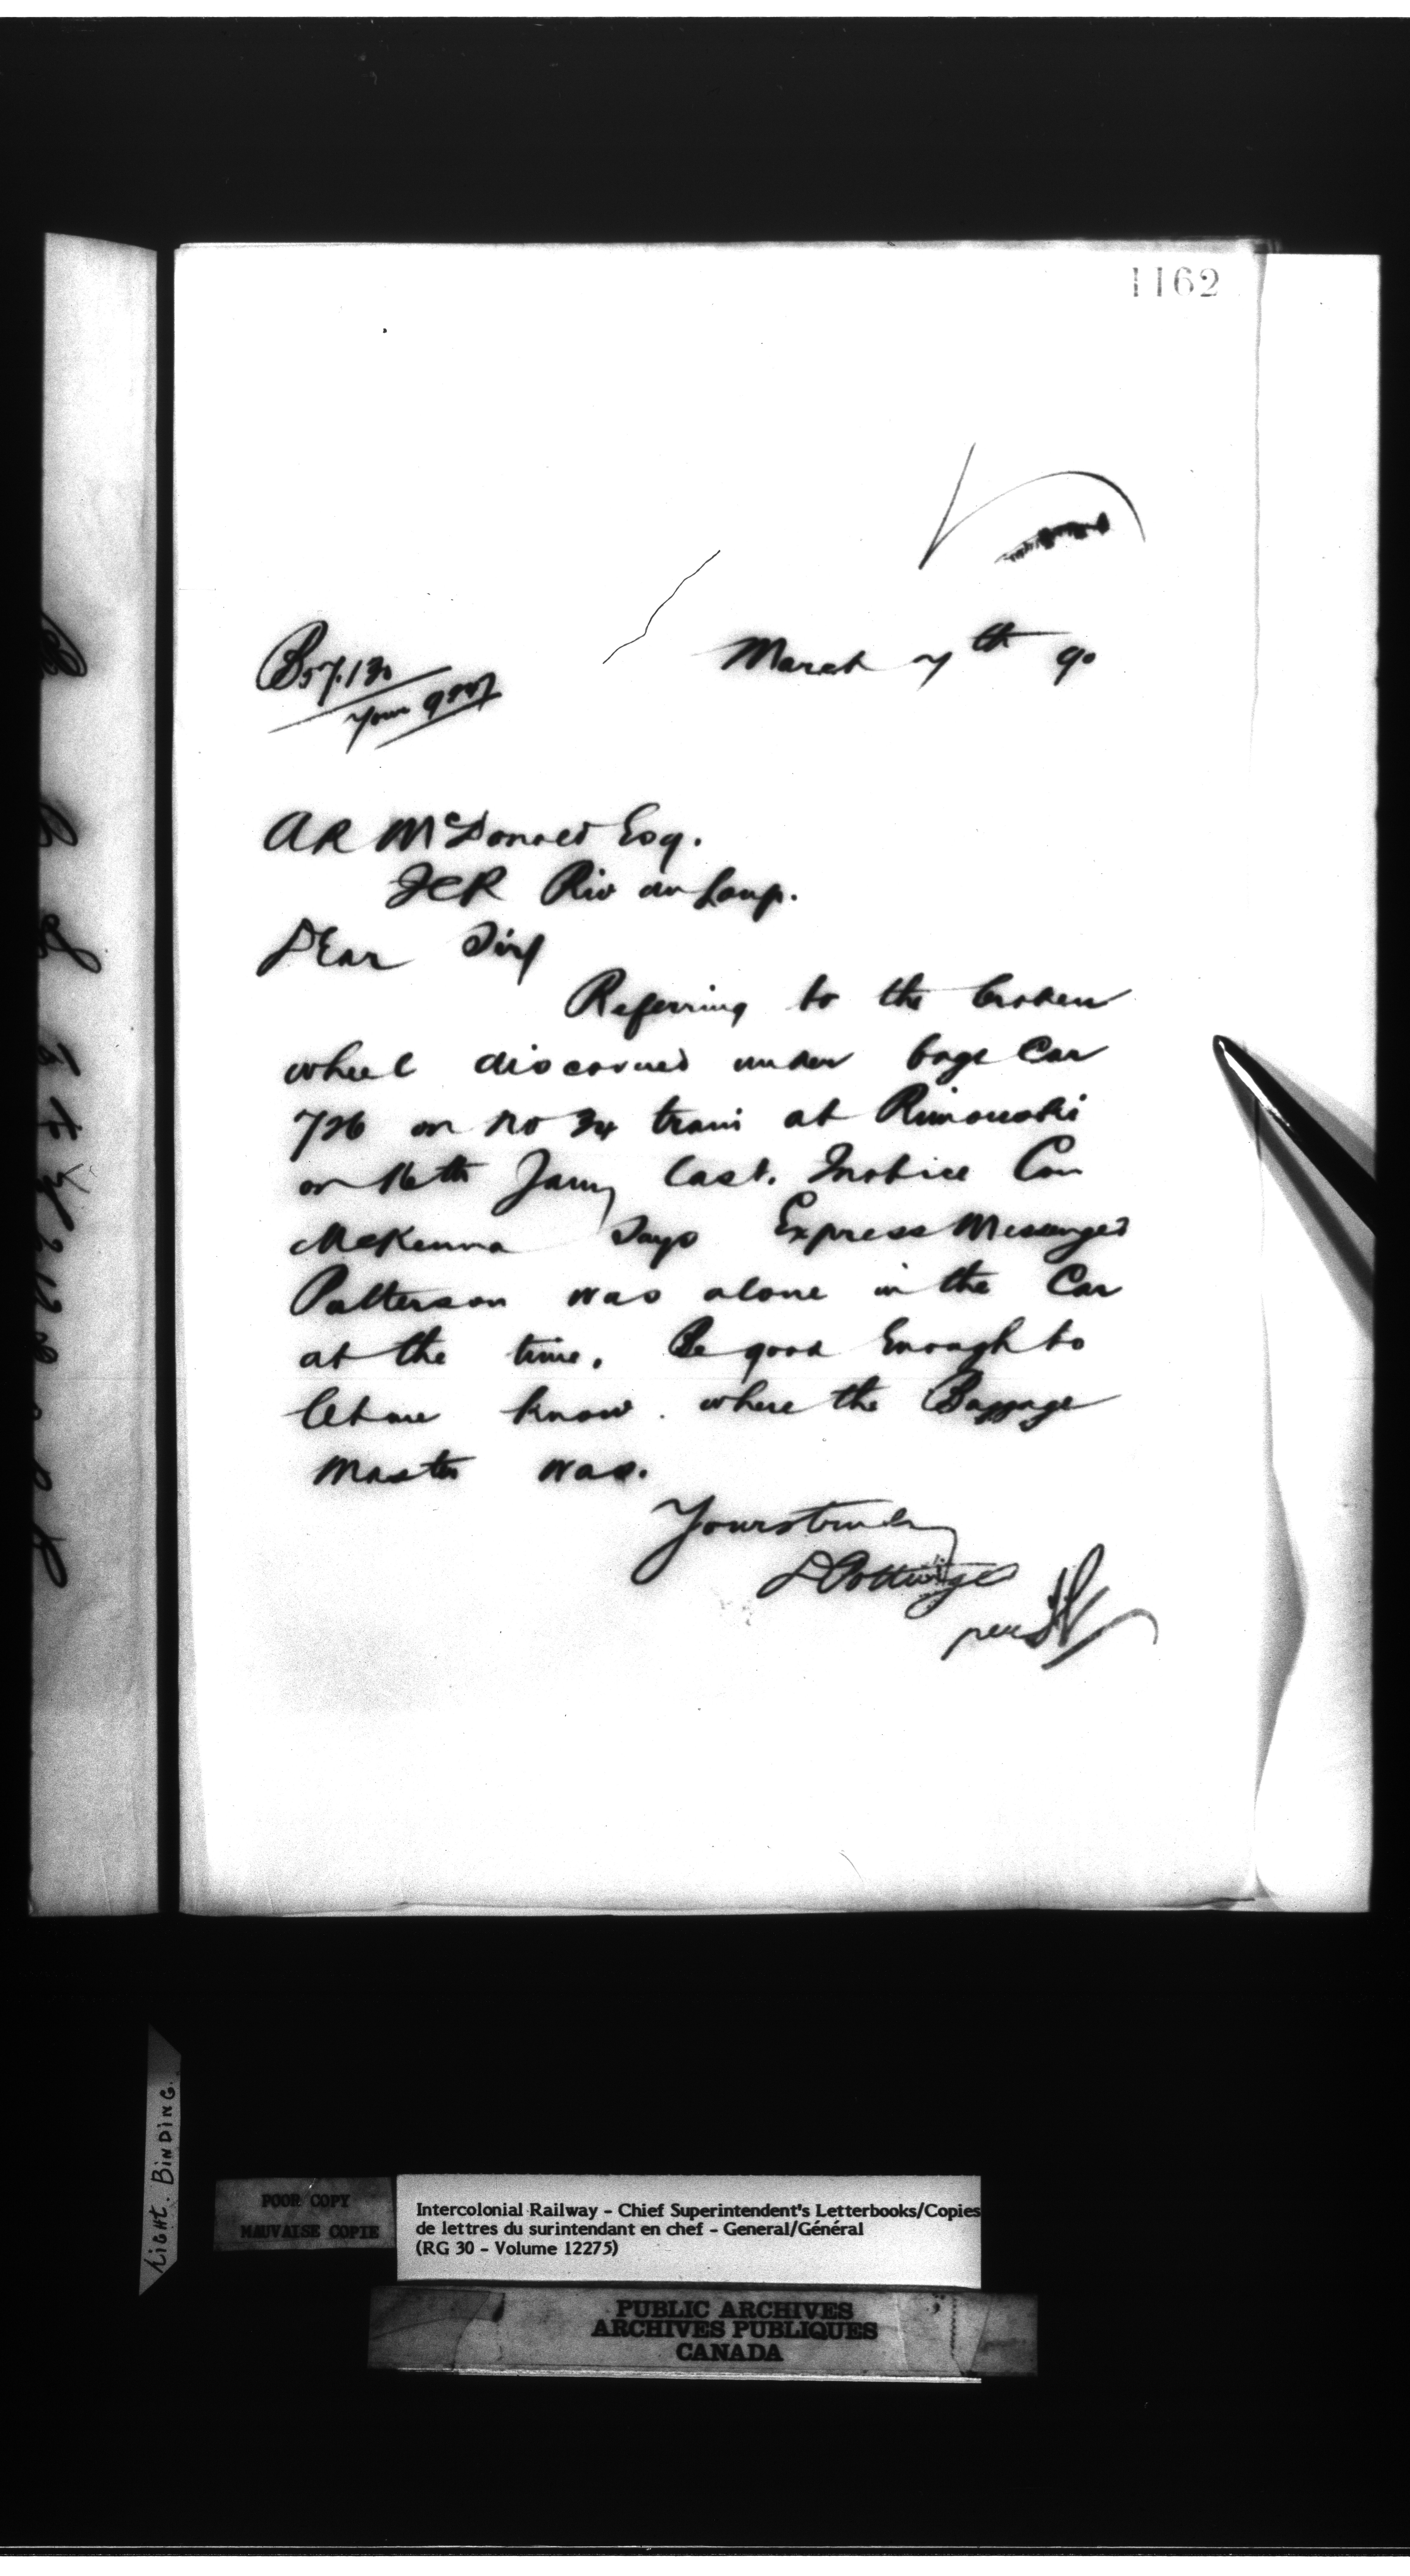 1162
March 7th 90
B57.130
Your
AR McDonald Esq.
ICR Riv du Loup.
Dear Sir/
Referring to the broken
wheel discovered under bage Car
726 on no 34 train at Rimouski
on 16th Jany last. I notice Con
McKenna Says Express Messenger
Patterson was alone in the Car
at the time. Be good Enough to
let me know where the Baggage
Master was.
Yours truly
D Pottinger
per
TIGHT. BINDING.
POOR COPY
MAUVAISE COPIE
Intercolonial Railway - Chief Superintendent's Letterbooks/Copies
de lettres du surintendant en chef - General/Général
(RG 30 - Volume 12275)
PUBLIC ARCHIVES
ARCHIVES PUBLIQUES
CANADA